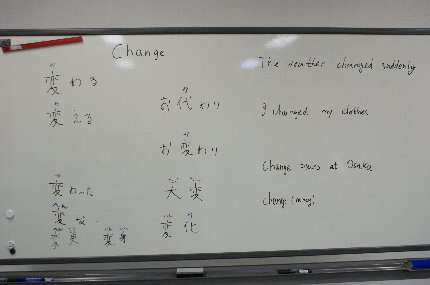 Change
変わる
変える
お代わり
お変わり
変わった
変な
変異 変身
大変
変化
The weather changed suddenly
I changed my clothes
Change trains at Osaka
change (money)